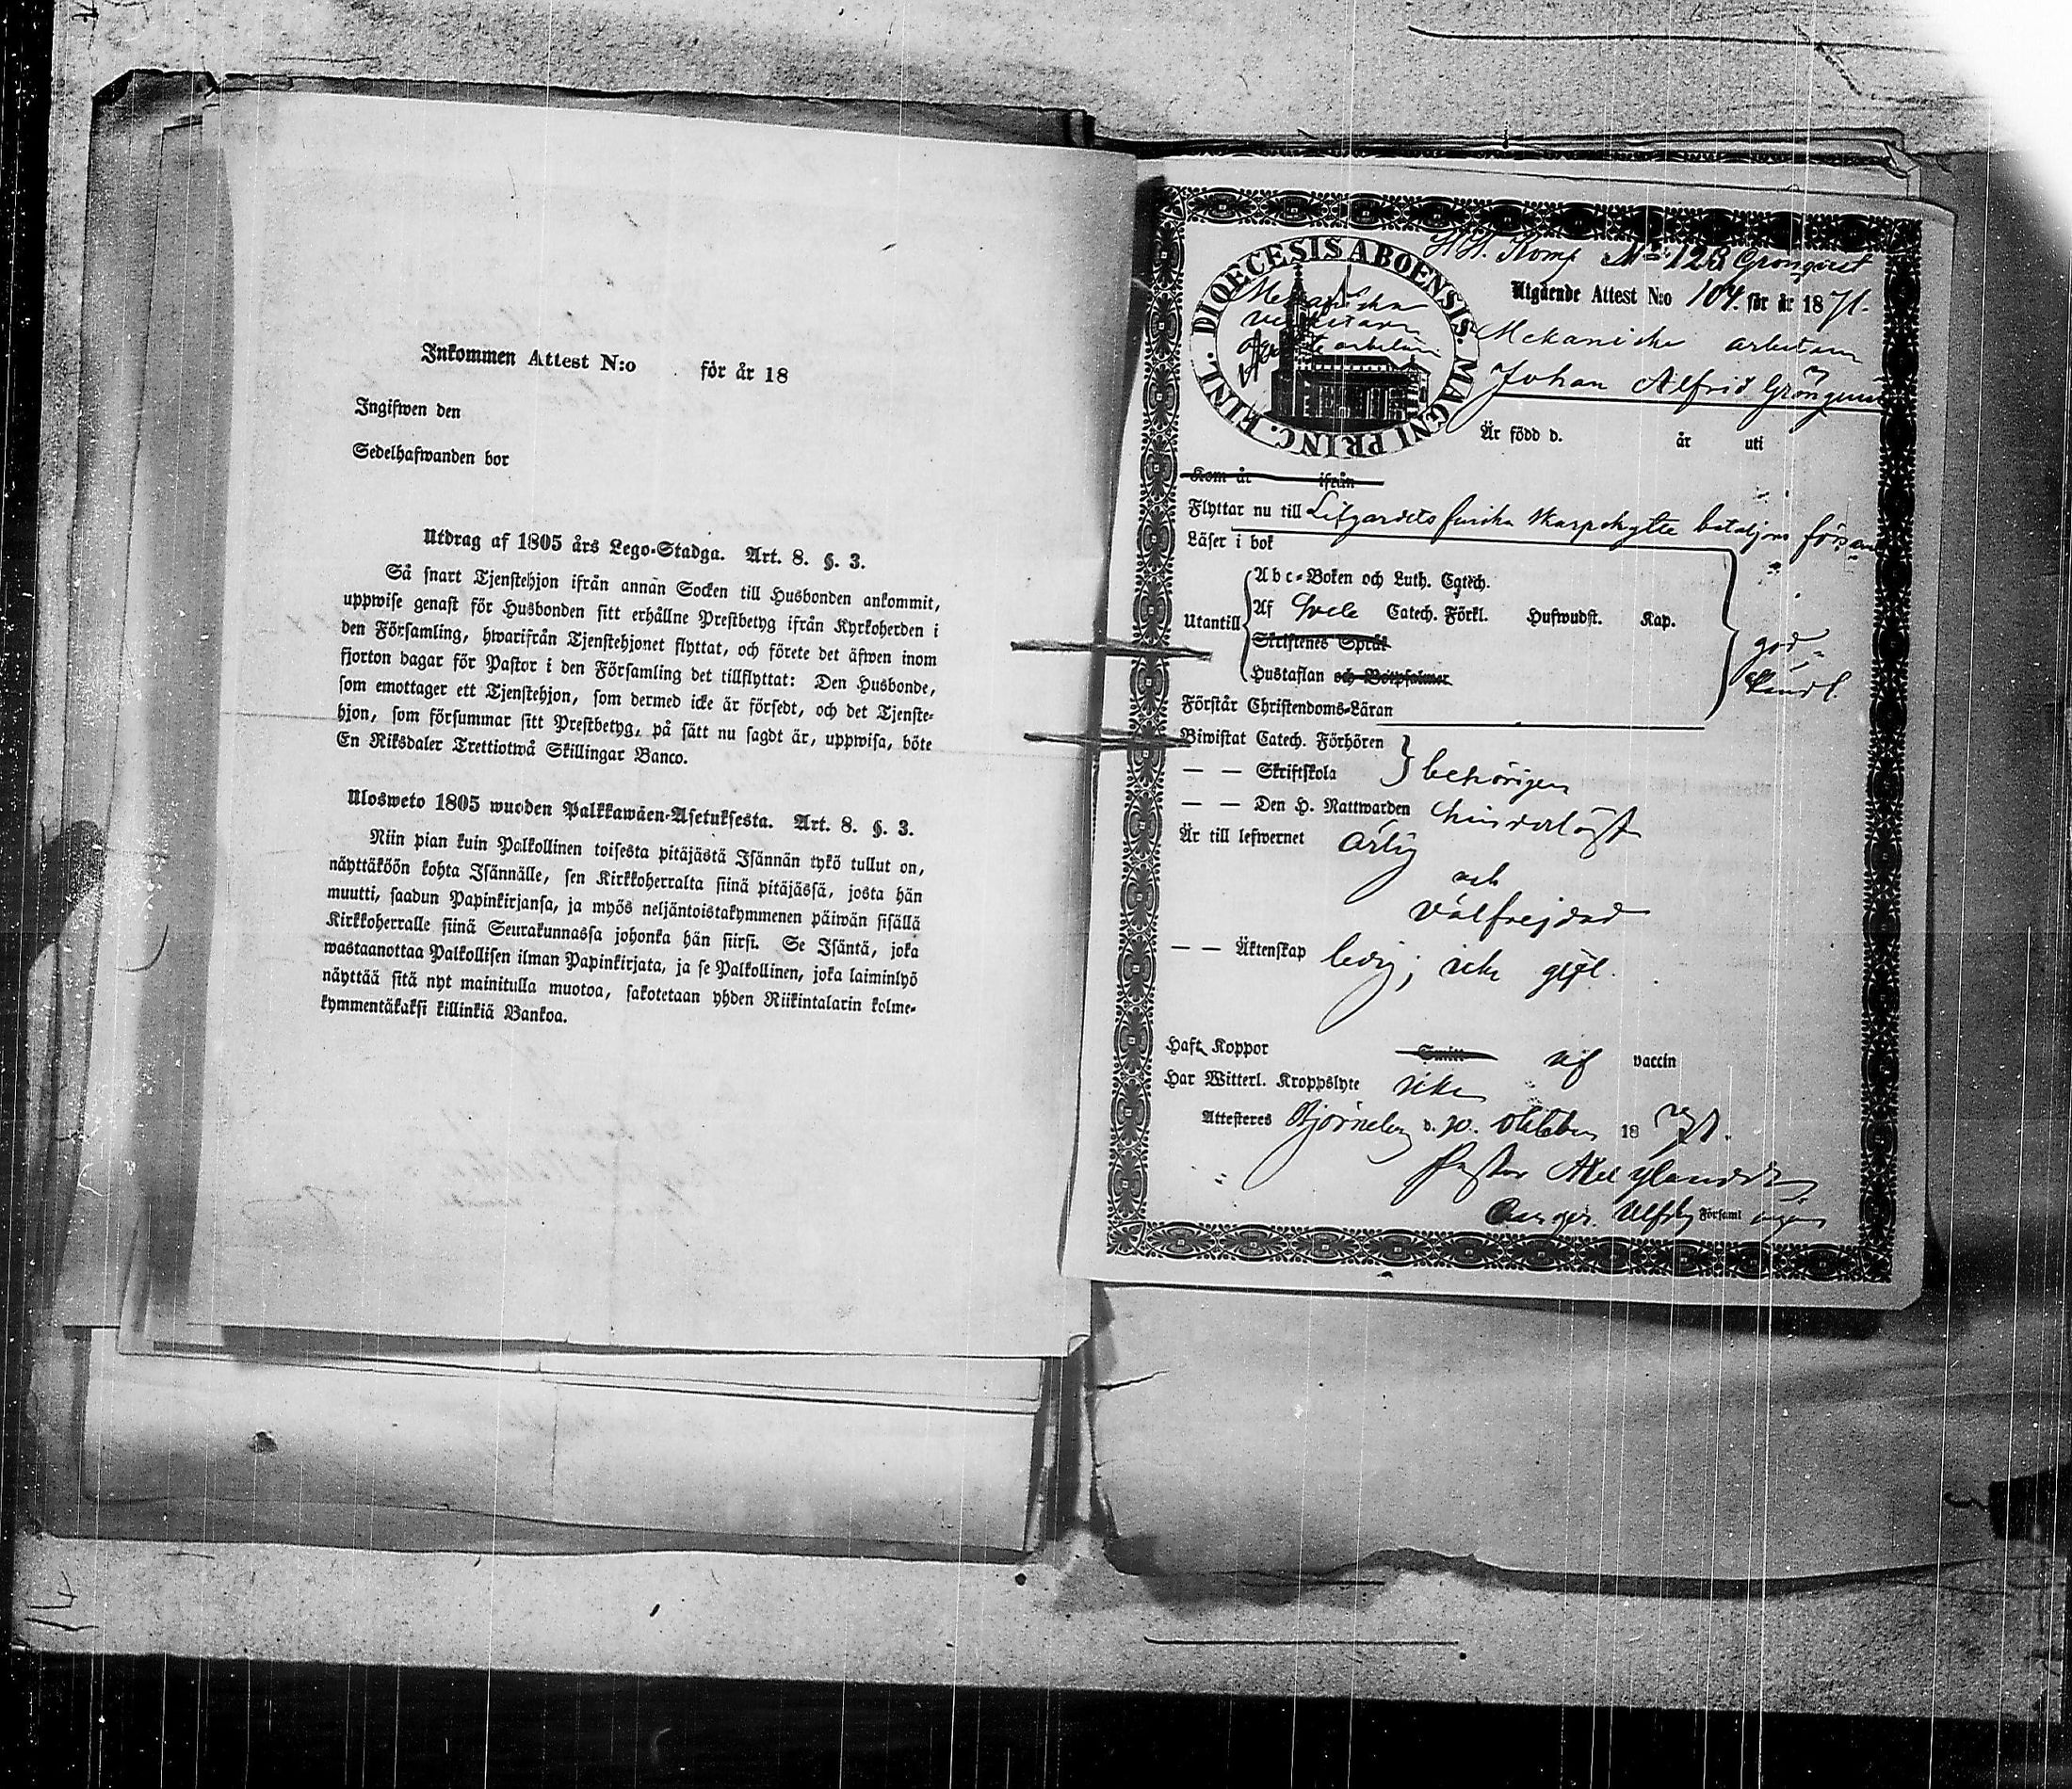 Inkommen Attest N:o för år 18
Ingifwen den
Sedelhafwanden bor
Utdrag af 1805 års Lego-Stadga. Art. 8. §. 3.
Så snart Tjenstehjon ifrån annan Socken till Husbonden ankommit,
uppwise genast för Husbonden sitt erhållne Prestbetyg ifrån Kyrkoherden i
den Församling, hwarifrån Tjenstehjonet flyttat, och förete det äfwen inom
fjorton dagar för Pastor i den Församling det tillflyttat: Den Husbonde,
som emottager ett Tjenstehjon, som dermed icke är försedt, och det Tjenste-
hjon, som försummar sitt Prestbetyg, på sätt nu sagdt är, uppwisa, böte
En Riksdaler Trettiotwå Skillingar Banco.
Ulosweto 1805 wuoden Palkkawäen-Asetuksesta. Art. 8. §. 3.
Niin pian kuin Palkollinen toisesta pitäjästä Isännän tykö tullut on,
näyttäköön kohta Isännälle, sen Kirkkoherralta siinä pitäjässä, josta hän
muutti, saadun Papinkirjansa, ja myös neljäntoistakymmenen päiwän sisällä
Kirkkoherralle siinä Seurakunnassa johonka hän siirsi. Se Isäntä, joka
wastaanottaa Palkollisen ilman Papinkirjata, ja se Palkollinen, joka laiminlyö
näyttää sitä nyt mainitulla muotoa, sakotetaan yhden Riikintalarin kolme-
kymmentäkaksi killinkiä Bankoa.
Komp No 123 Grönqvist
DIOECESIS ABOENSIS. MAGNI PRINC. FINL.
Utgående Attest N:o 104. för år 1871.
Mekaniska arbetaren
Johan Alfrid Grönqvist
Är född d. år uti
Kom år ifrån
Flyttar nu till Lifgardets finska skarpskytte bataljons
Läser i bok
Abc-Boken och Luth. Catech.
Utantill Af Svele Catech. Förkl. Hufwudst. Kap.
Skriftenes Språk
Hustaflan och Botpsalmer
god-
kändt.
Förstår Christendoms-Läran
Biwistat Catech. Förhören
— — Skriftskola behörigen
— — Den H. Nattwarden hinderlöst
Är till lefwernet ärlig
och
välfrejdad
— — Äktenskap ledig; icke gift.
Haft Koppor Smitt vaccin
Har Witterl. Kroppslyte icke
Attesteres Björneborg d. 20. Oktober 1871.
Pastor Axel
Ulfsby Församl